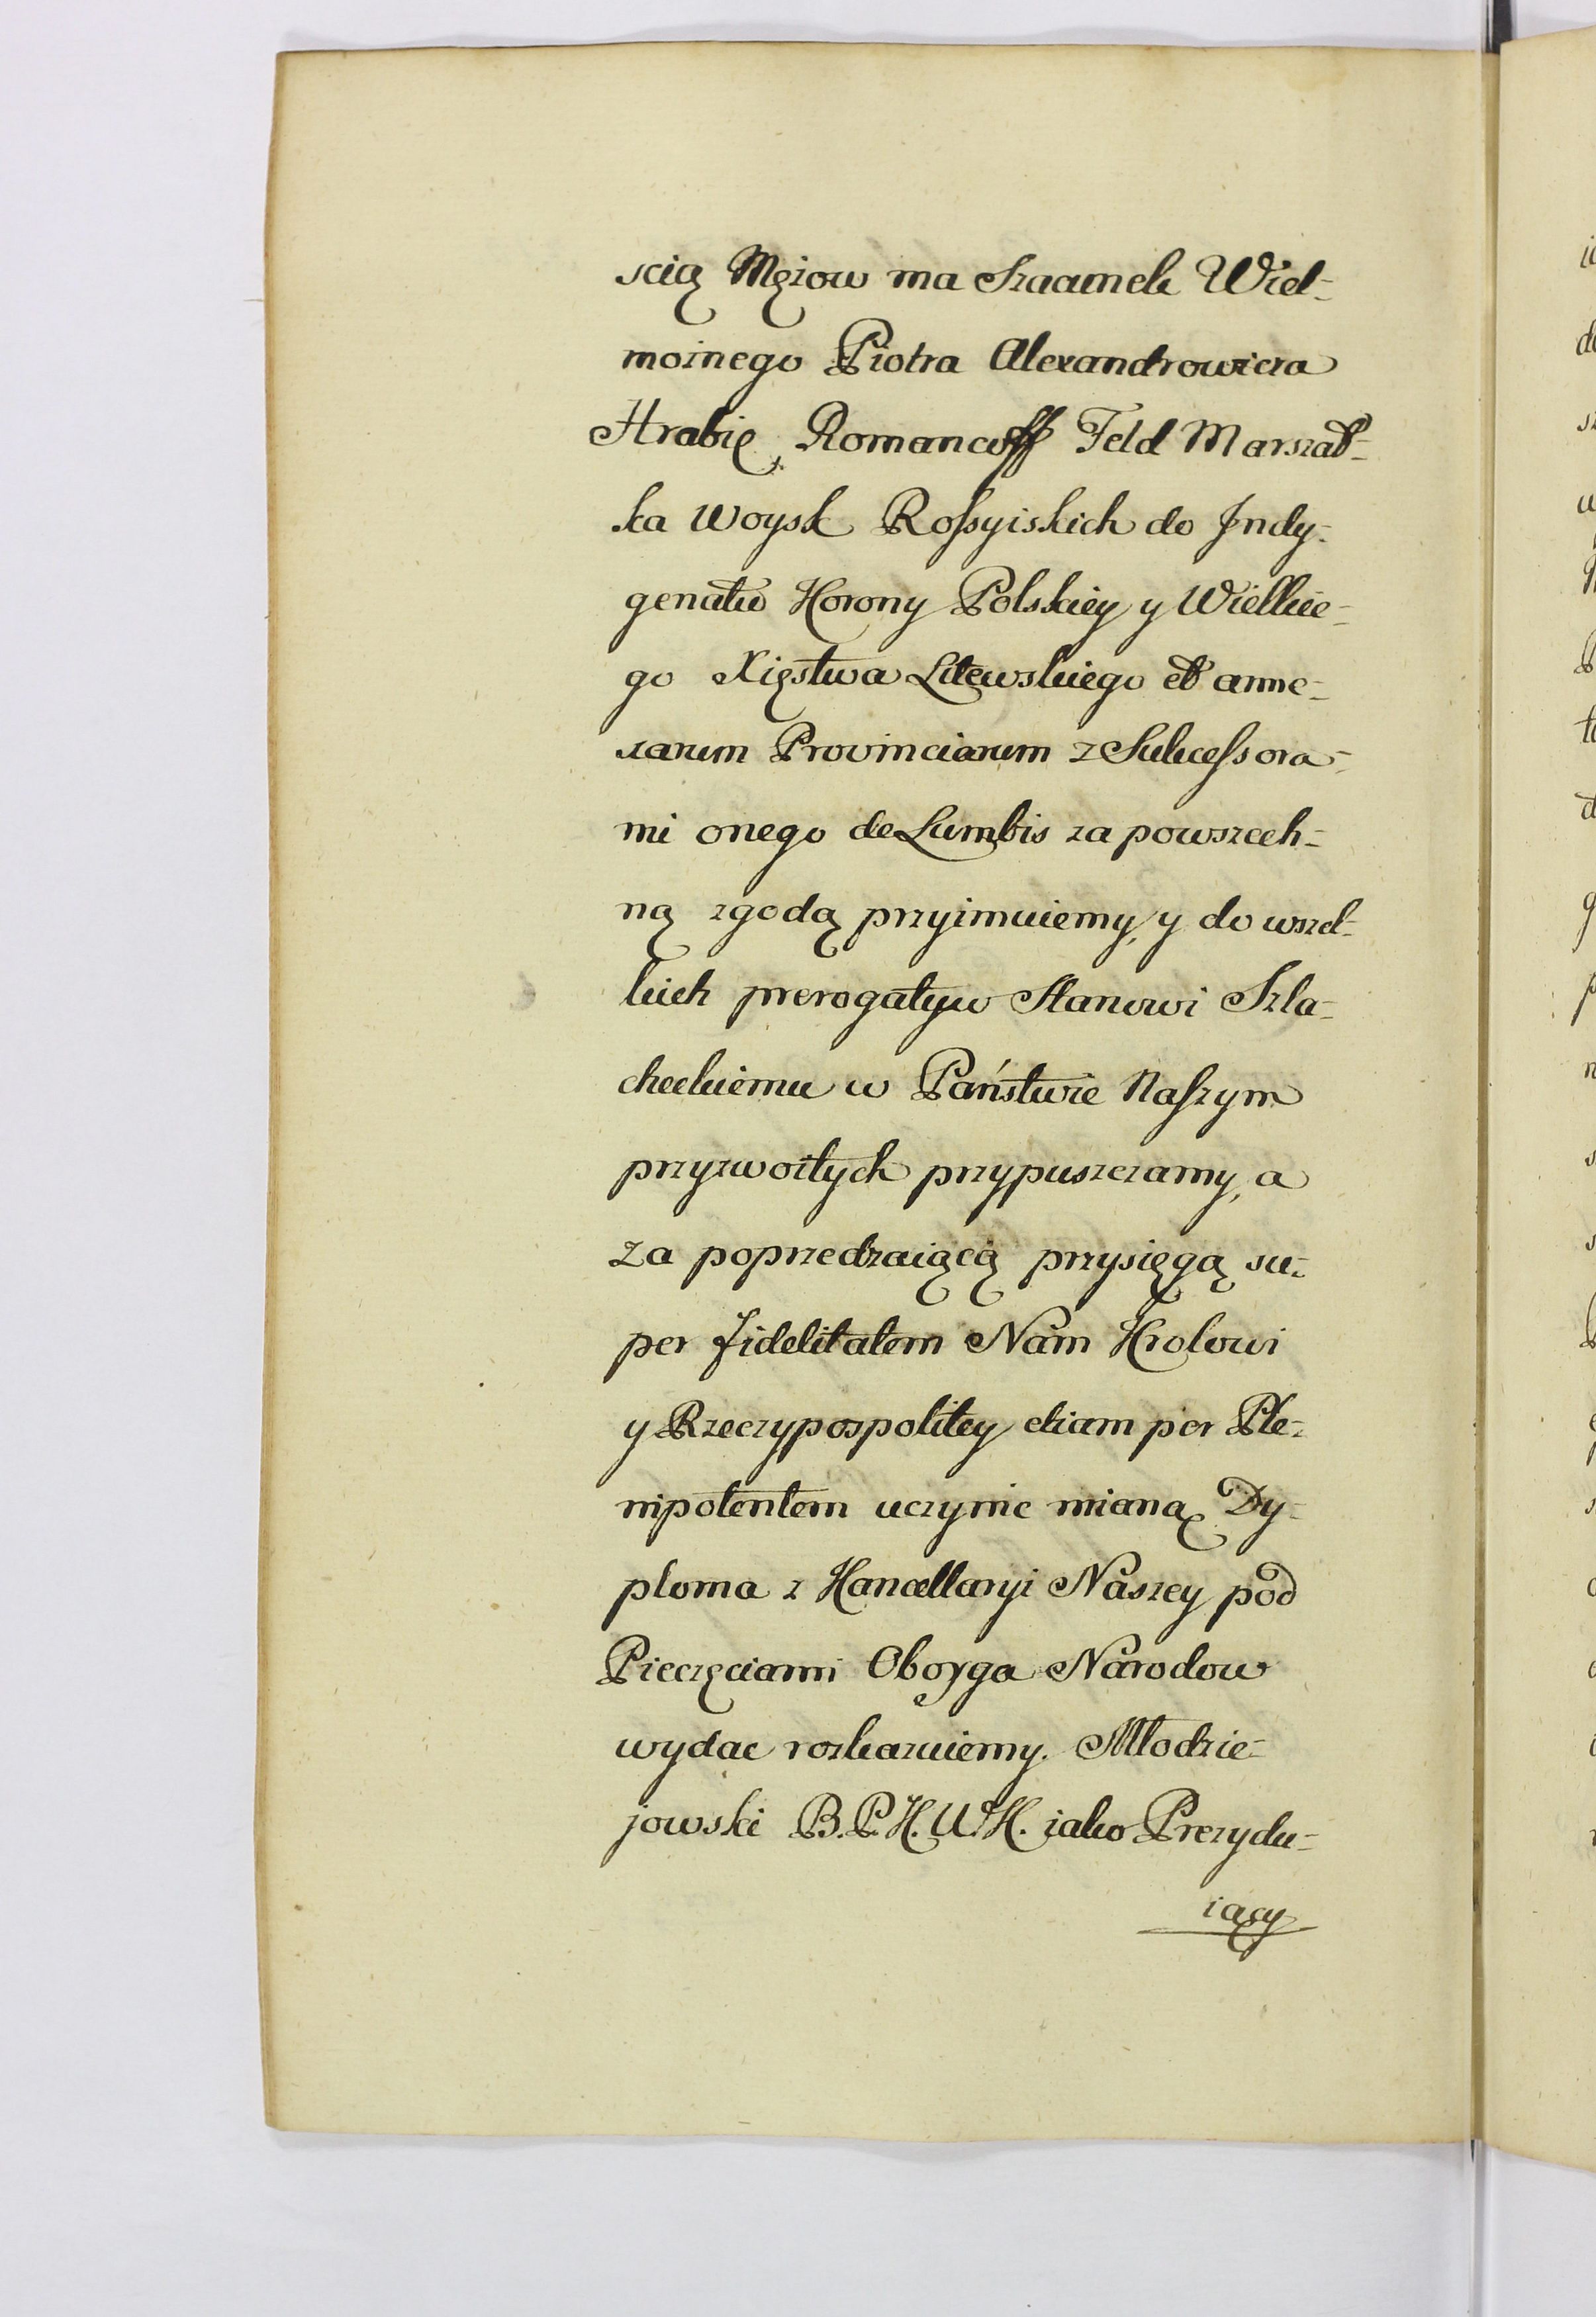 scią Mężow ma Szacunek Wiel-
możnego Piotra Alexandrowicza
Hrabię Romancoff Feld Marszał-
ka Woysk Rossyiskich do Indy-
genatu Korony Polskiey y Wielkie-
go Xięstwa Litewskiego et anne-
xarum Provinciarum z Sukcessora-
mi onego de Lumbis za powszech-
ną zgodą przyimuiemy, y do wszel-
kich prerogatyw Stanowi Szla-
checkiemu w Państwie Naszym
przyzwoitych przypuszczamy, a
za poprzedzaiącą przysięgą su-
per fidelitatem Nam Krolowi
y Rzeczypospolitey etiam per Ple-
nipotentem uczynic mianą Dy-
ploma z Kancellaryi Naszey pod
Pieczęciami Oboyga Narodow
wydac rozkazuiemy. Młodzie-
jowski B.P.K.W.K. iako Prezydu-
iący